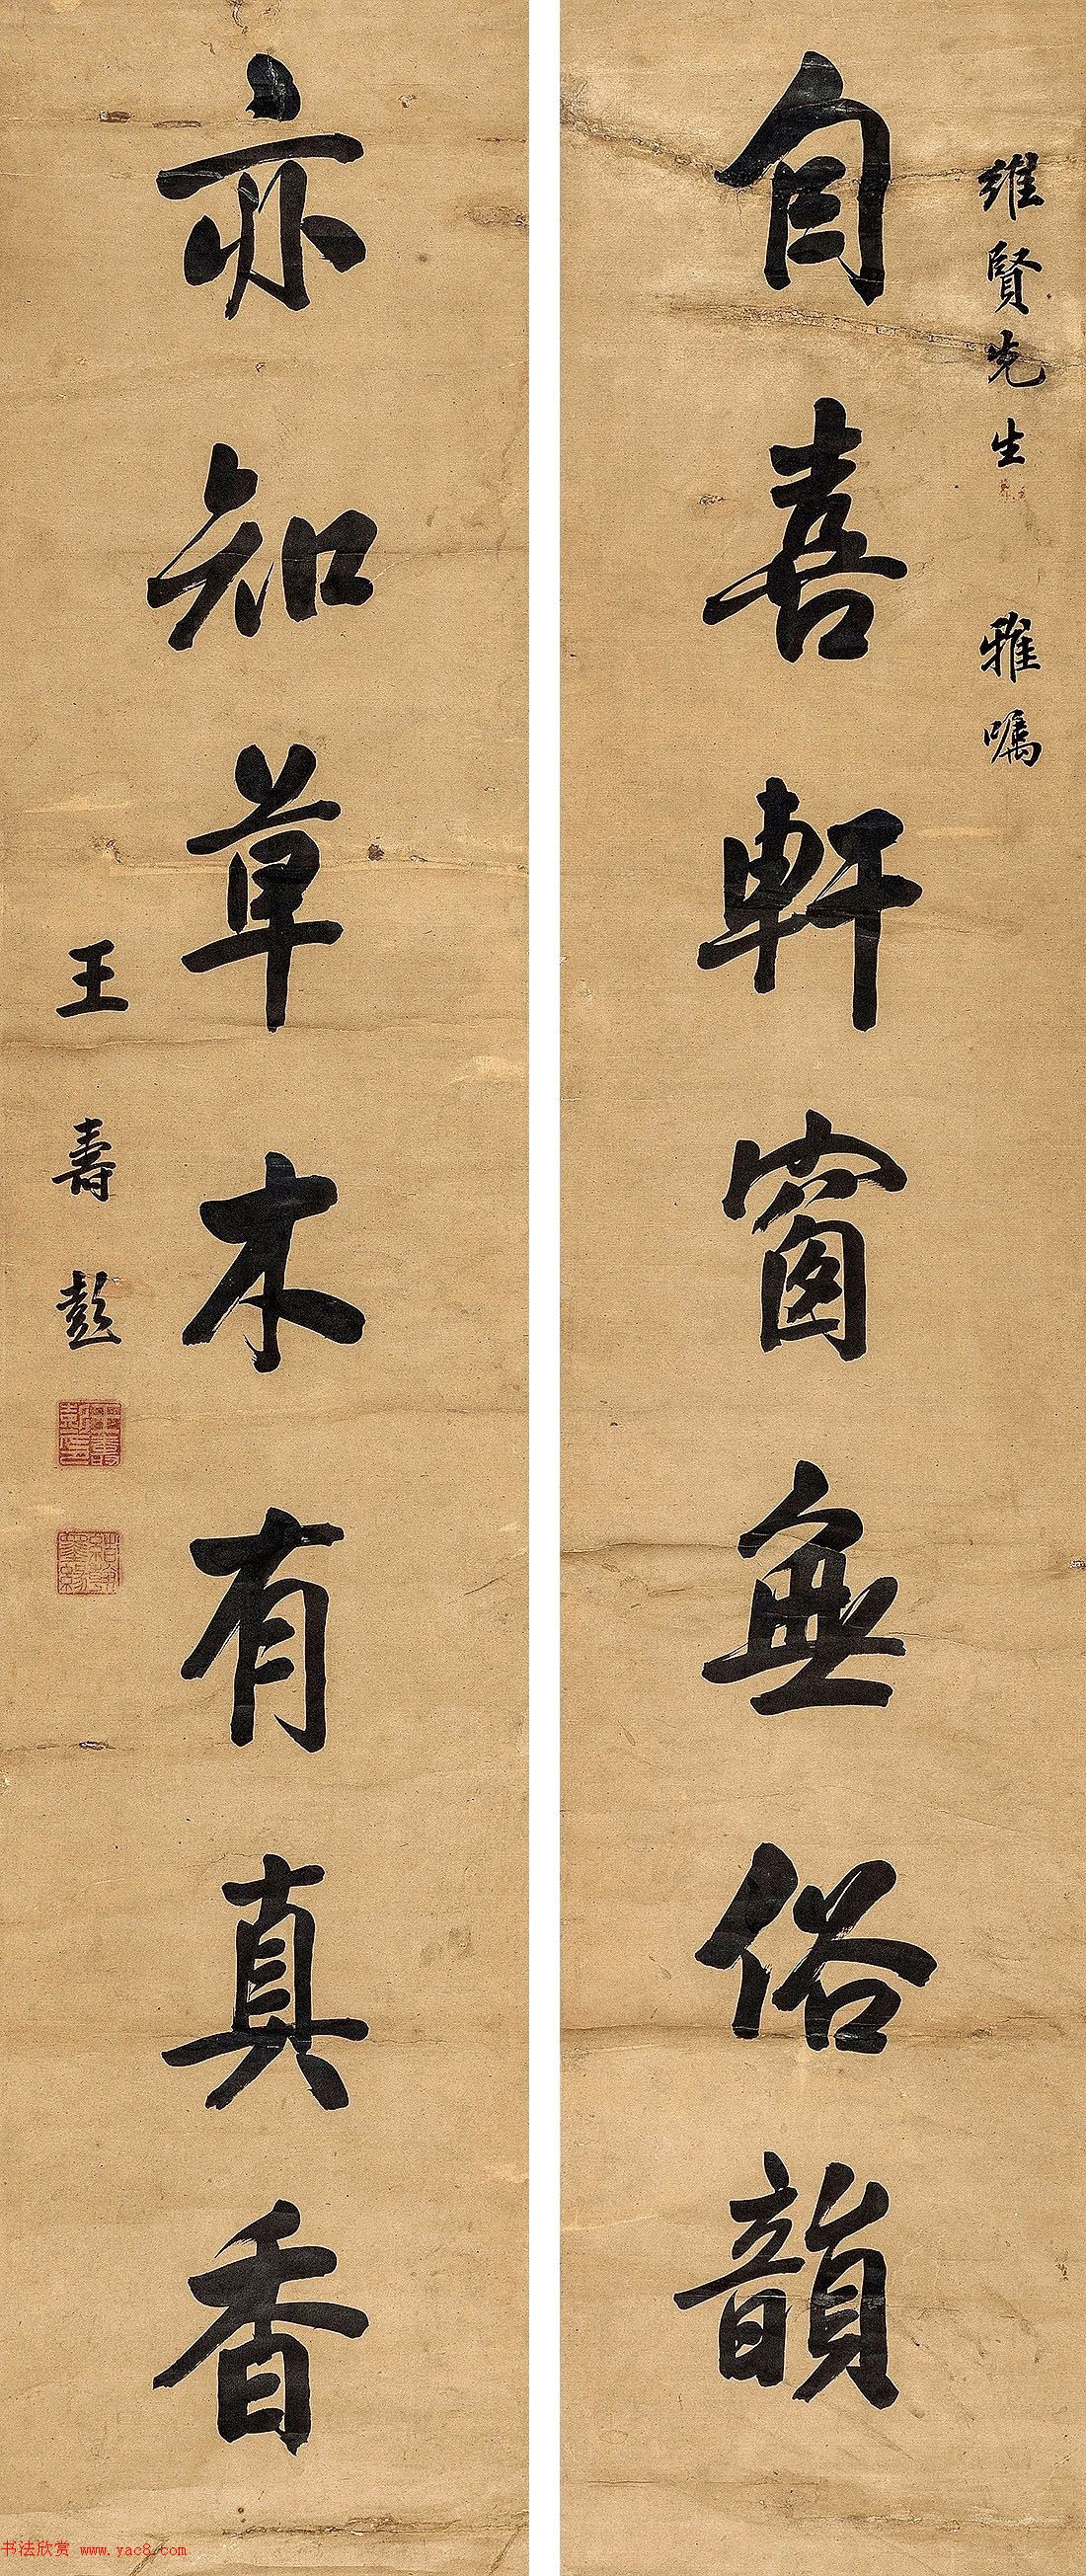 維賢先生 雅囑
自喜軒窗無俗韻
亦知草木有真香
王壽彭
书法欣赏 www.yac8.com